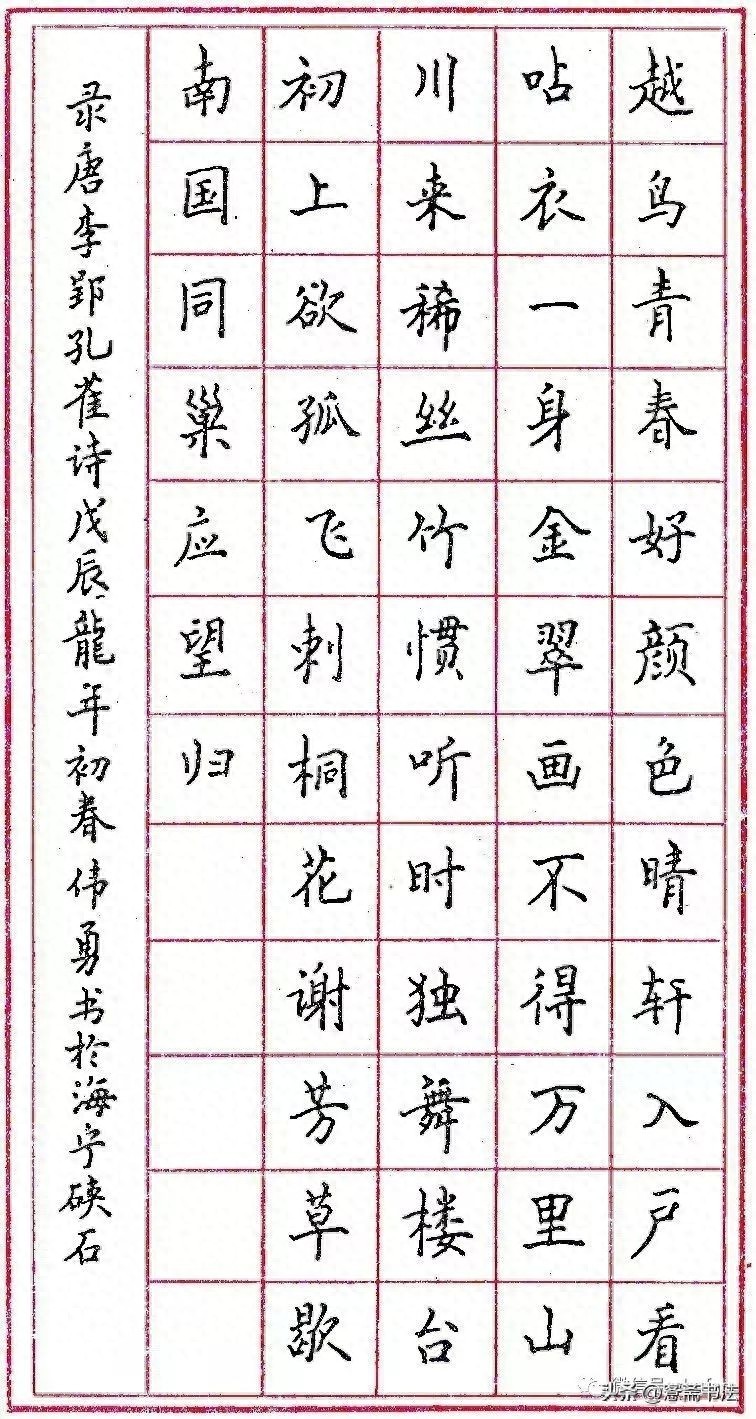 越鸟青春好颜色晴轩入户看
呫衣一身金翠画不得万里山
川来稀丝竹惯听时独舞楼台
初上欲孤飞刺桐花谢芳草歇
南国同巢应望归
录唐李郢孔雀诗戊辰龍年初春伟勇书於海宁硖石
头条@添斋书法